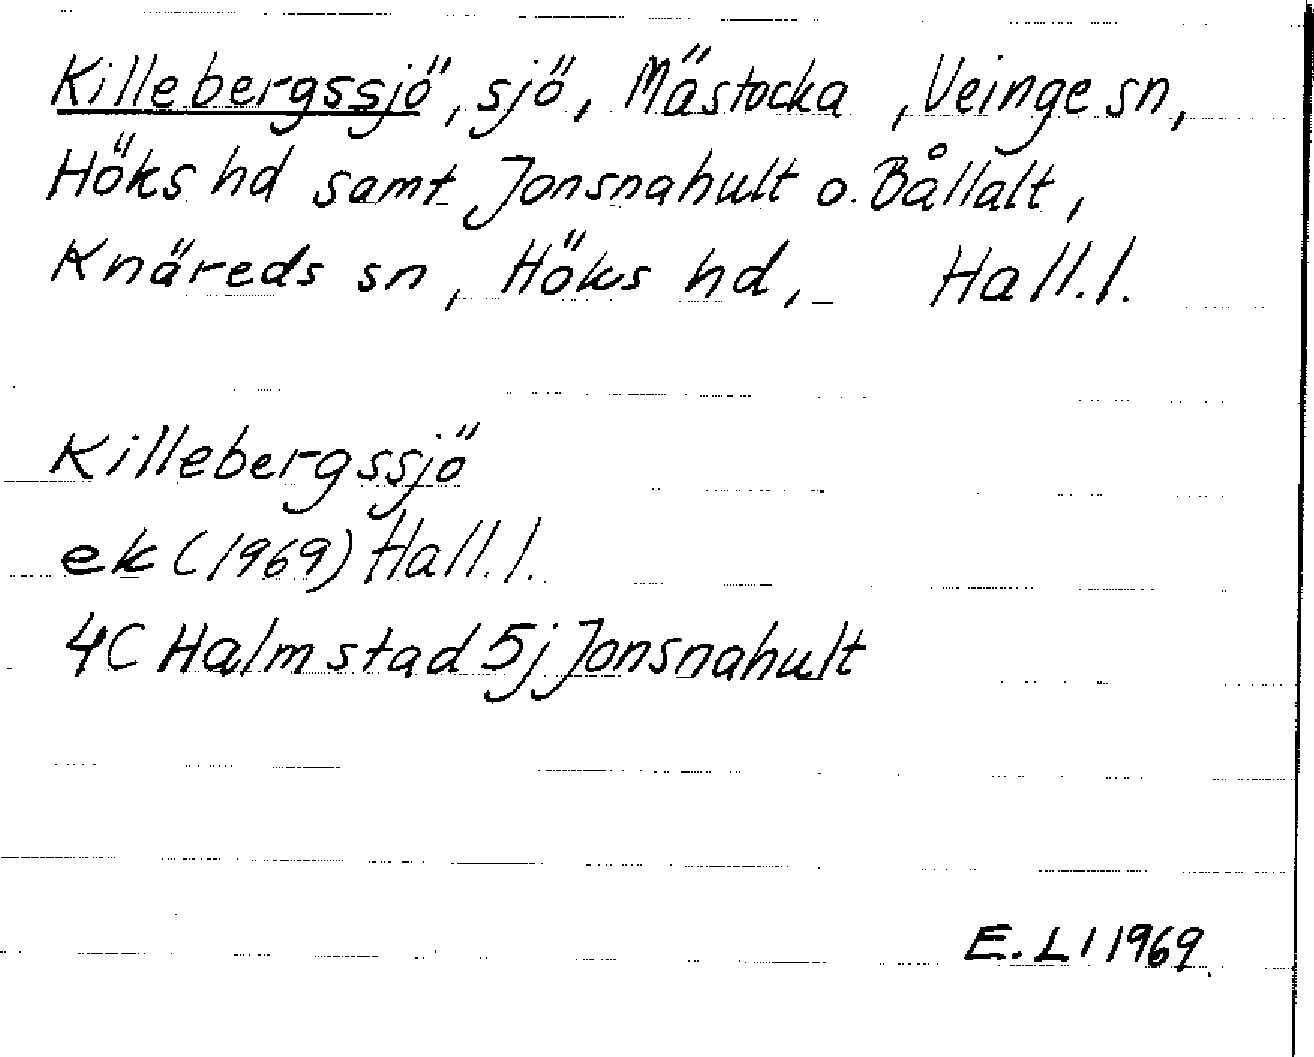 Killebergssjö, sjö, Mästocka, Veinge sn,
Höks hd samt Jonsnahult o. Bållalt,
Knäreds sn, Höks hd, Hall.l.
Killebergssjö
ek (1969) Hall.l.
4C Halmstad 5j Jonsnahult
E. LI 1969